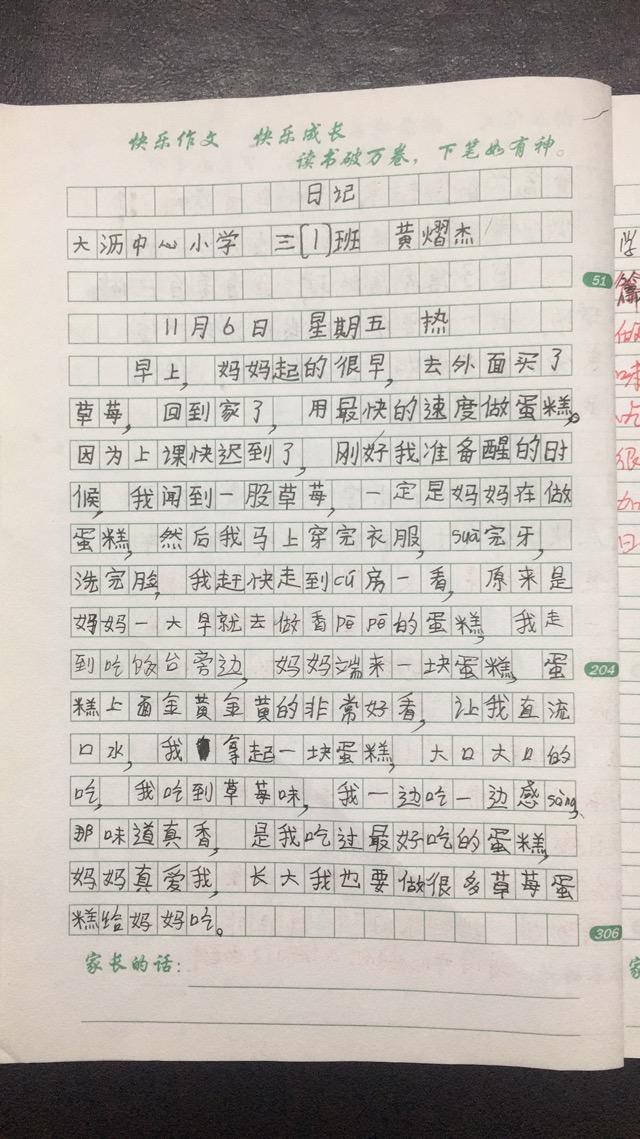 快乐作文 快乐成长
读书破万卷，下笔如有神。
日记
大沥中心小学 三(1)班 黄熠杰
51
11月6日 星期五 热
早上，妈妈起的很早，去外面买了
草莓，回到家了，用最快的速度做蛋糕。
因为上课快迟到了，刚好我准备醒的时
候，我闻到一股草莓，一定是妈妈在做
蛋糕，然后我马上穿完衣服，suā完牙，
洗完脸，我赶快走到cú房一看，原来是
妈妈一大早就去做香pē pē的蛋糕，我走
到吃饭台旁边，妈妈端来一块蛋糕，蛋
204
糕上面金黄金黄的非常好香，让我直流
口水，我拿起一块蛋糕，大口大口的
吃，我吃到草莓味，我一边吃一边感sàng、
那味道真香，是我吃过最好吃的蛋糕，
妈妈真爱我，长大我也要做很多草莓蛋
糕给妈妈吃。
306
家长的话：
学
篇
做
味
占
很
加
日